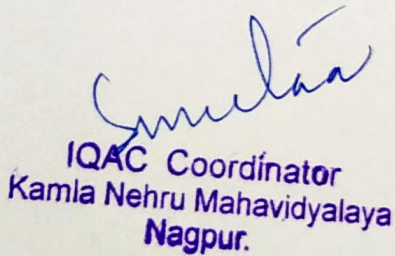 IQAC Coordinator
Kamla Nehru Mahavidyalaya
Nagpur.